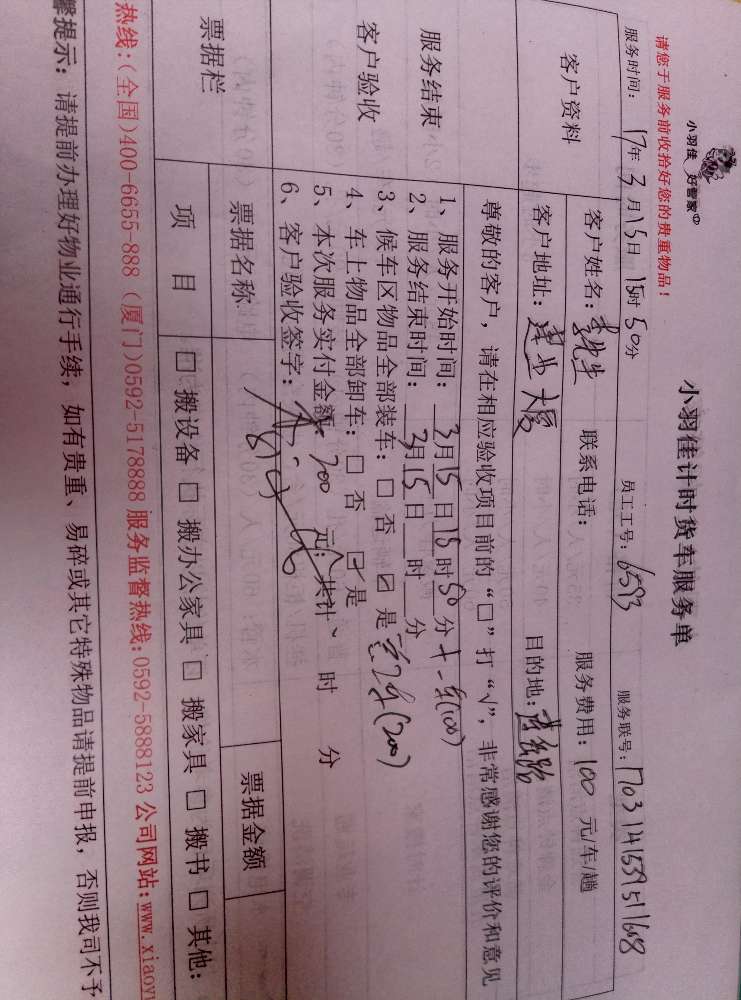 小羽佳 好管家
小羽佳计时货车服务单
请您于服务前收拾好您的贵重物品！
服务时间：17年3月15日15时50分 员工工号：6593 服务联号：1703141539511608
客户资料
客户姓名：李先生 联系电话： 服务费用：100 元/车/趟
客户地址：建业大厦 目的地：
尊敬的客户，请在相应验收项目前的“□”打“√”，非常感谢您的评价和意见
服务结束
客户验收
1、服务开始时间：3月15日15时50分 +一车(100)
2、服务结束时间：3月15日 时 分
3、候车区物品全部装车：□ 否 ☑ 是 共2车(200)
4、车上物品全部卸车：□ 否 ☑ 是
5、本次服务实付金额：200 元；共计、 时 分
6、客户验收签字：
票据栏
票据名称 票据金额
项 目
□ 搬设备 □ 搬办公家具 □ 搬家具 □ 搬书 □ 其他：
热线：(全国)400-6655-888 (厦门)0592-5178888 服务监督热线：0592-5888123 公司网站：www.xiaoy
馨提示：请提前办理好物业通行手续，如有贵重、易碎或其它特殊物品请提前申报，否则我司不予